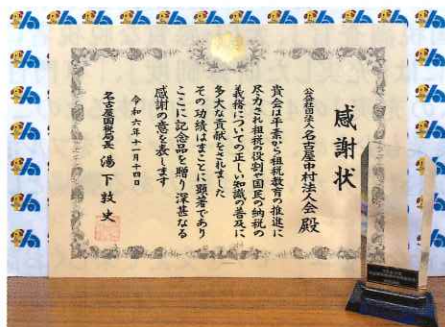 感謝状
公益社団法人名古屋中村法人会 殿
貴会は平素から租税教育の推進に
尽力され租税の役割や国民の納税の
義務についての正しい知識の普及に
多大な貢献をされました
その功績はまことに顕著であり
ここに記念品を贈り深甚なる
感謝の意を表します
令和六年十一月十四日
名古屋国税局長 湯下敦史